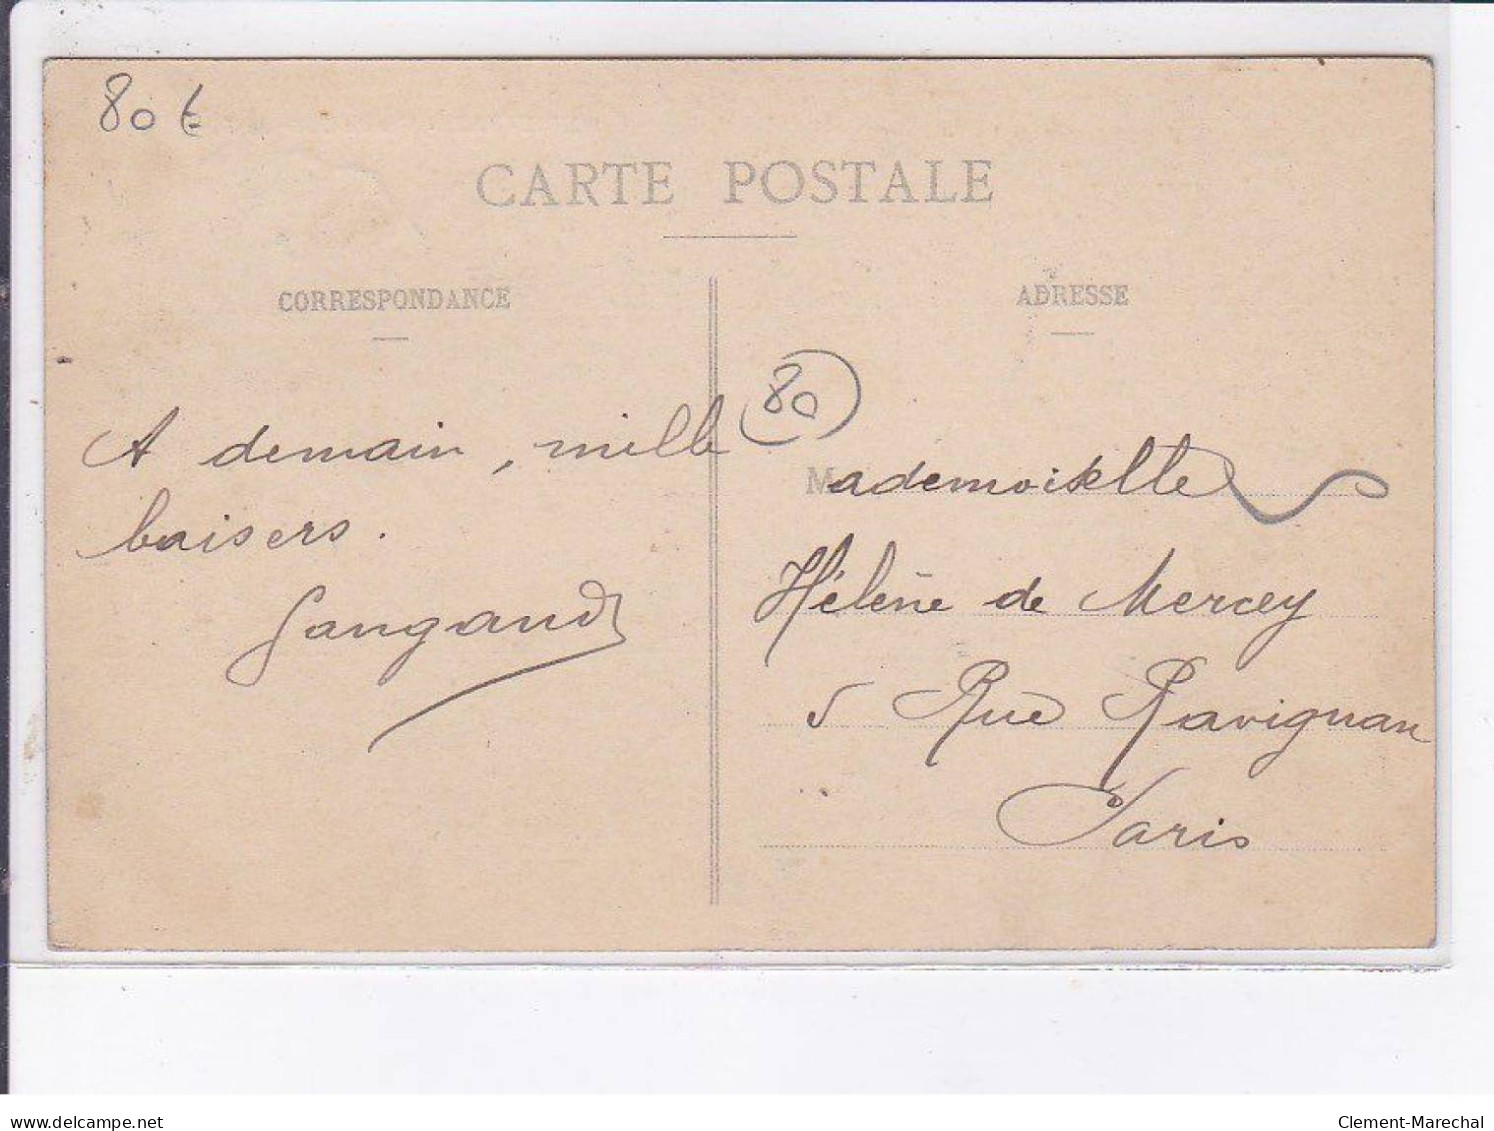 80 €
CARTE POSTALE
CORRESPONDANCE
A demain, mille
baisers.
Gangand
ADRESSE
80
Mademoiselle
Hélène de Mercey
5 Rue Ravignan
Paris
delcampe.net
Clement-Marechal